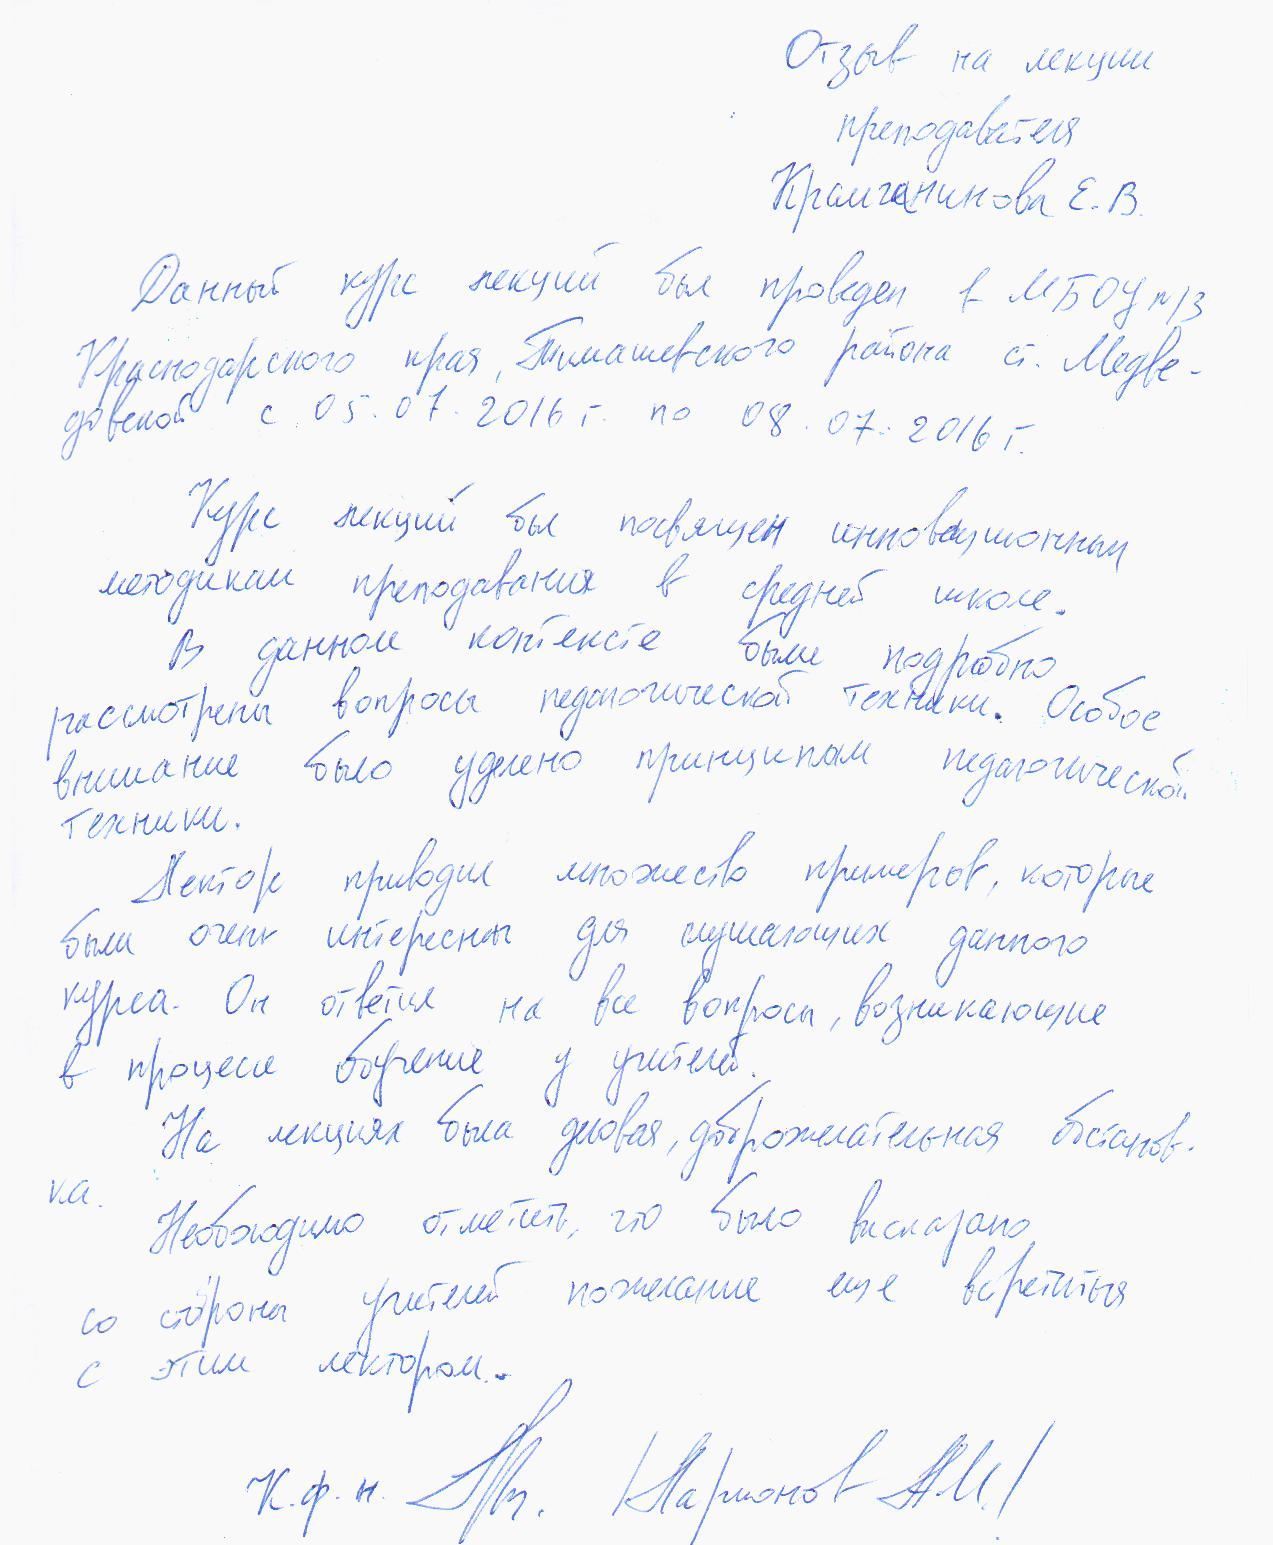 Отзыв на лекции
преподавателя
Е.В.
Данный курс лекций был проведен в МБОУ №13
Краснодарского края, Тимашевского района ст. Медве-
довской с 05.07.2016г. по 08.07.2016г.
Курс лекций был посвящен инновационным
методикам преподавания в средней школе.
В данном контексте были подробно
рассмотрены вопросы педагогической техники. Особое
внимание было уделено принципам педагогической
техники.
Лектор приводил множество примеров, которые
были очень интересны для слушающих данного
курса. Он ответил на все вопросы, возникающие
в процессе обучение у учителей.
На лекциях была деловая, доброжелательная обстанов-
ка.
Необходимо отметить, что было высказано
со стороны учителей пожелание еще встретиться
с этим лектором.
К.ф.н. /Ларионов А.М./